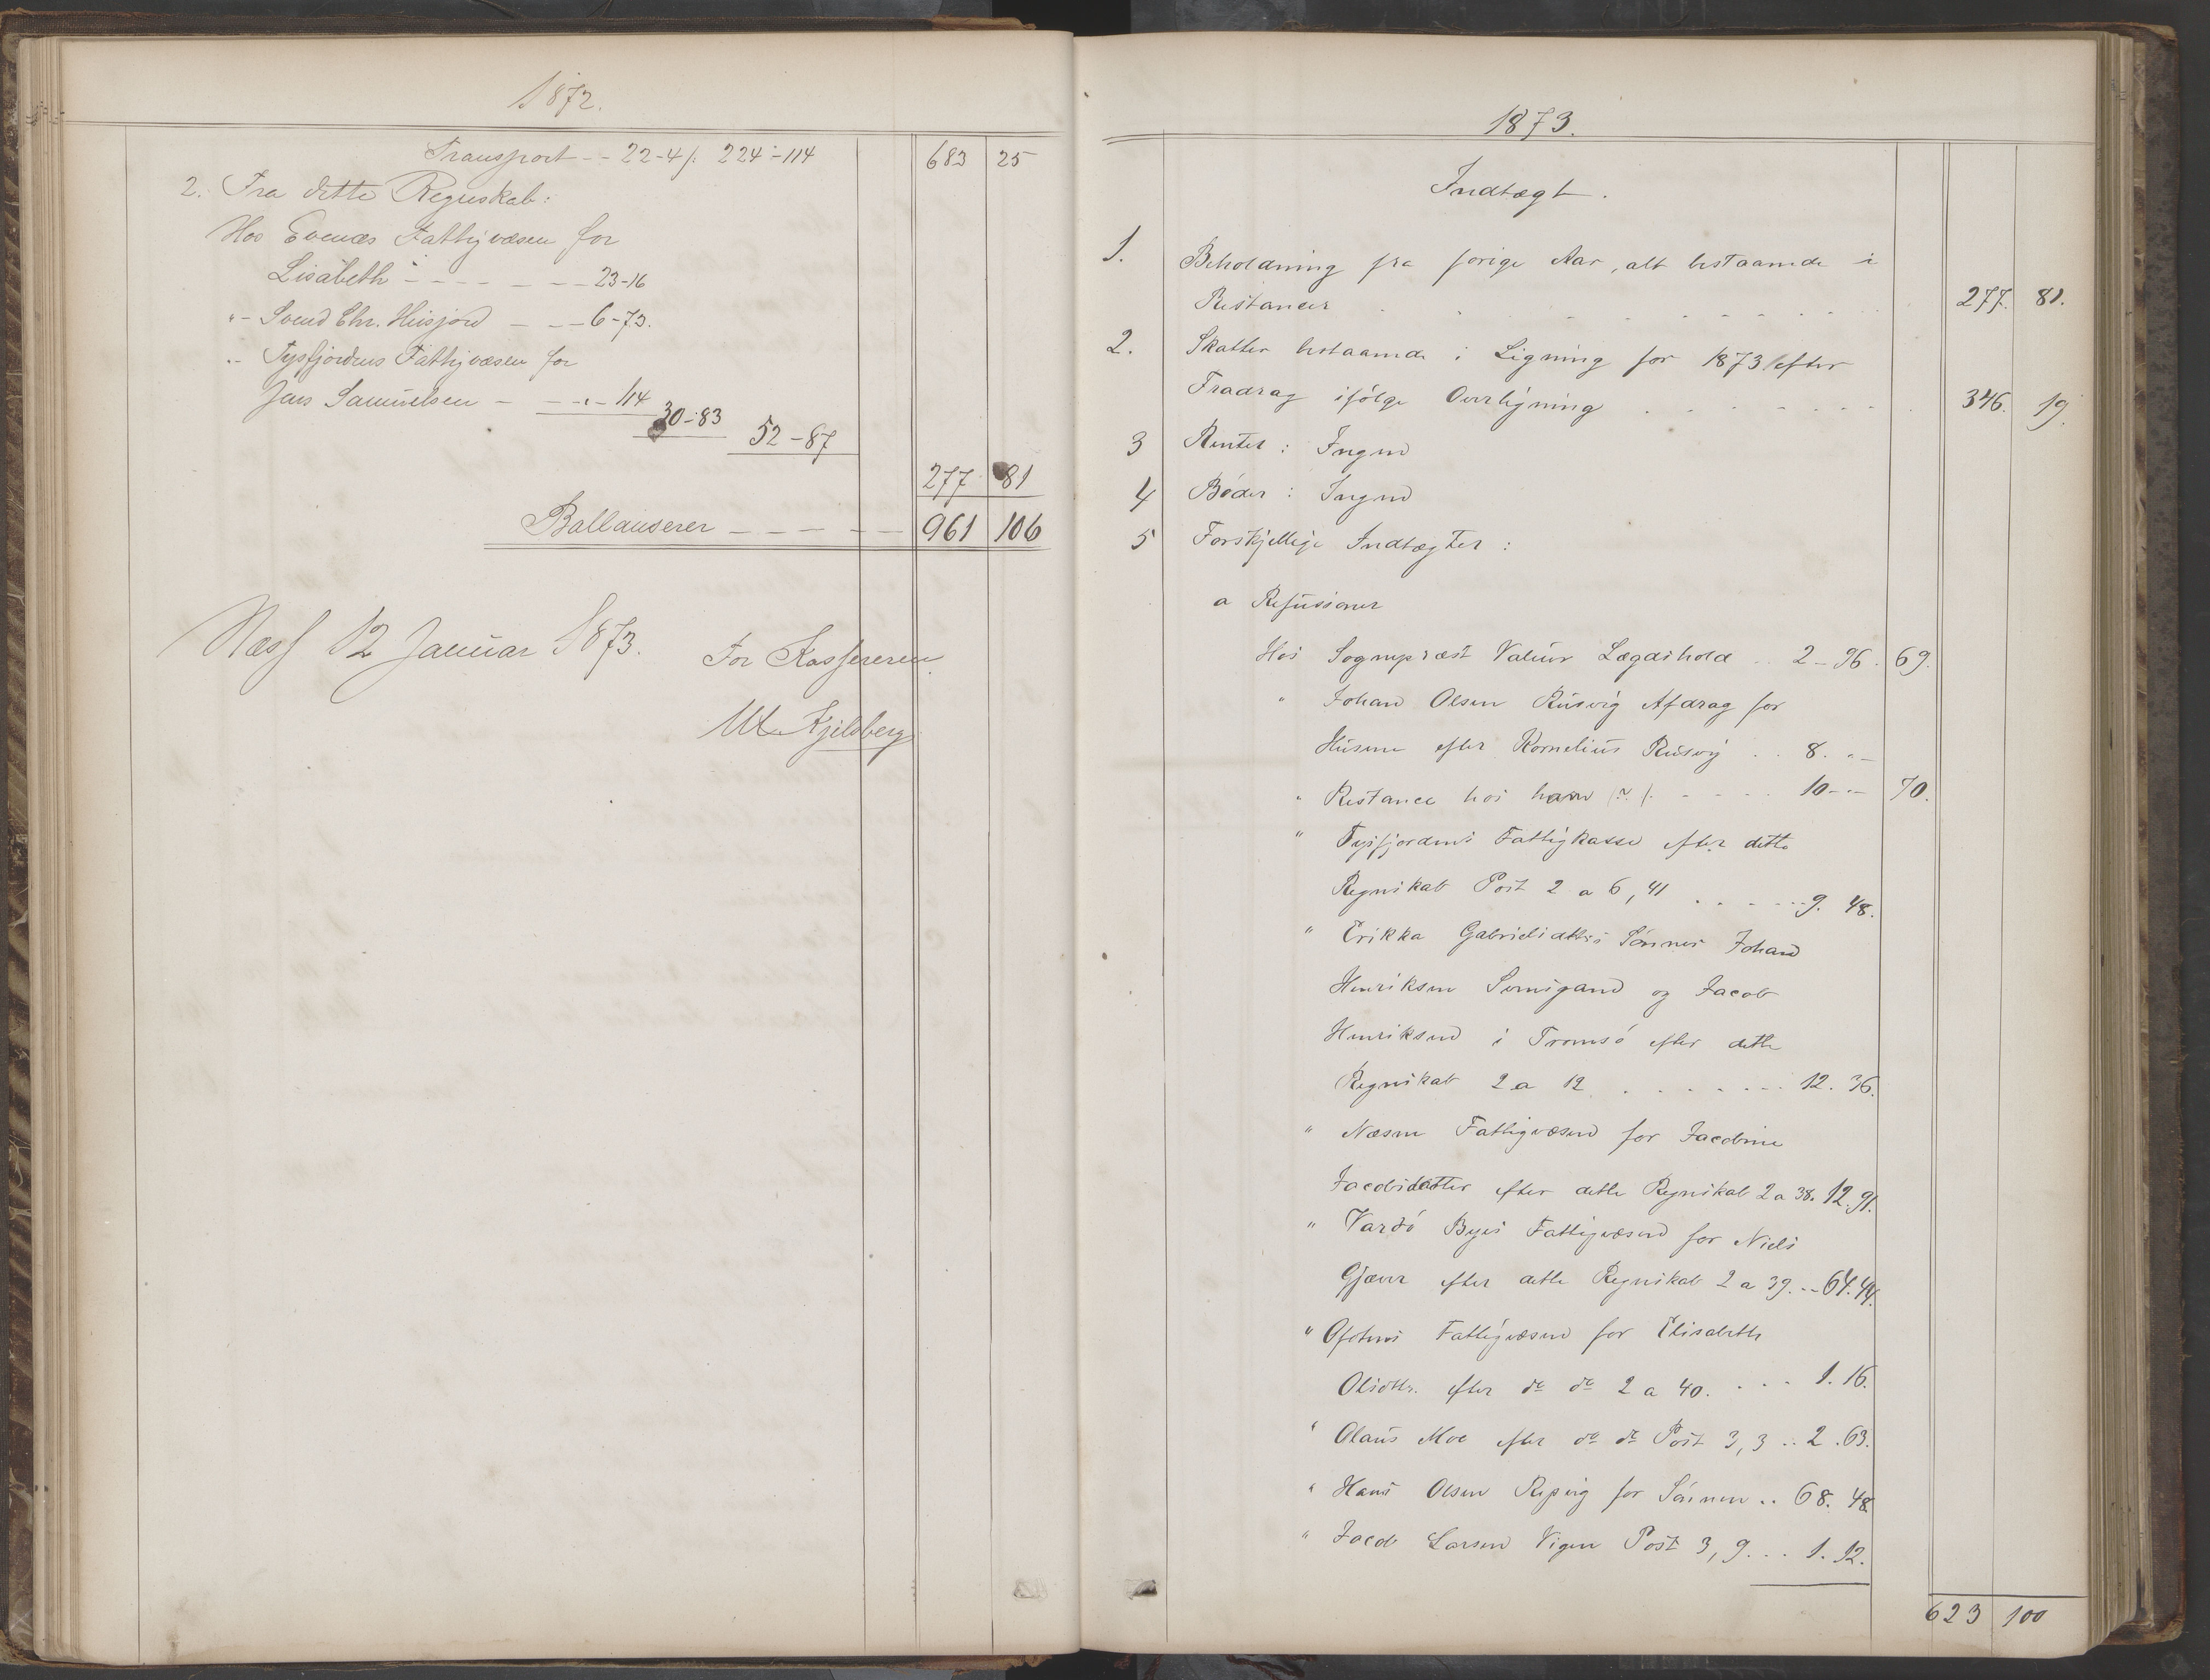 1872.
Transport -- 22-4 /: 224-114 683 25
2. Fra dette Regnskab:
Hos Evenæs Fattigvæsen for
Lisabeth - - - - - - - 23-16
"- Svend Chr. Husjord - - - 6-73.
"- Tysfjordens Fattigvæsen for
Jens Samuelsen - - - " - 114
30-83
52-87
277 81
Ballanserer - - - - 961 106
Næss 12 Januar 1873. For Kassereren
Kjeldberg
1873.
Indtægt.
1. Beholdning fra forige Aar, alt bestaaende i
Restancer . . . . . . . . . 277. 81.
2. Skatter bestaaende i Ligning for 1873 efter
Fradrag ifølge Overligning . . . . . . . . 346. 19.
3 Renter: Ingen
4 Bøder: Ingen
5 Forskjellige Indtægter:
a Refusioner
Hos Sognepræst Lægdshold .. 2-96. 69.
" Johan Olsen Rusvig Afdrag for
Husene efter Kornelius Rusvig . . 8. "-
" Restance hos ham - - - - - 10-"- 70.
" Tysfjordens Fattigkasse efter dette
Regnskab Post 2 a 6, 41 . . . . . . 9. 48.
" Erikka Gabrielsdtrs Sønner Johan
Henriksen og Jacob
Henriksen i Tromsø efter dette
Regnskab 2 a 12 . . . . . . . 12. 36.
" Næsne Fattigvæsen for Jacobine
Jacobsdatter efter dette Regnskab 2 a 38. 12. 91.
" Vardø Byes Fattigvæsen for Niels
Gjæver efter dette Regnskab 2 a 39. .. 64. 44.
" Ofotens Fattigvæsen for Elisabeth
Olsdtr. efter do do 2 a 40. . . . 1. 16.
" Olaus Moe efter do do Post 3, 3 .. 2. 63.
" Hans Olsen Repvig for Sønnen .. 68. 48
" Jacob Larsen Vigen Post 3, 9 . . . 1. 12.
623 100